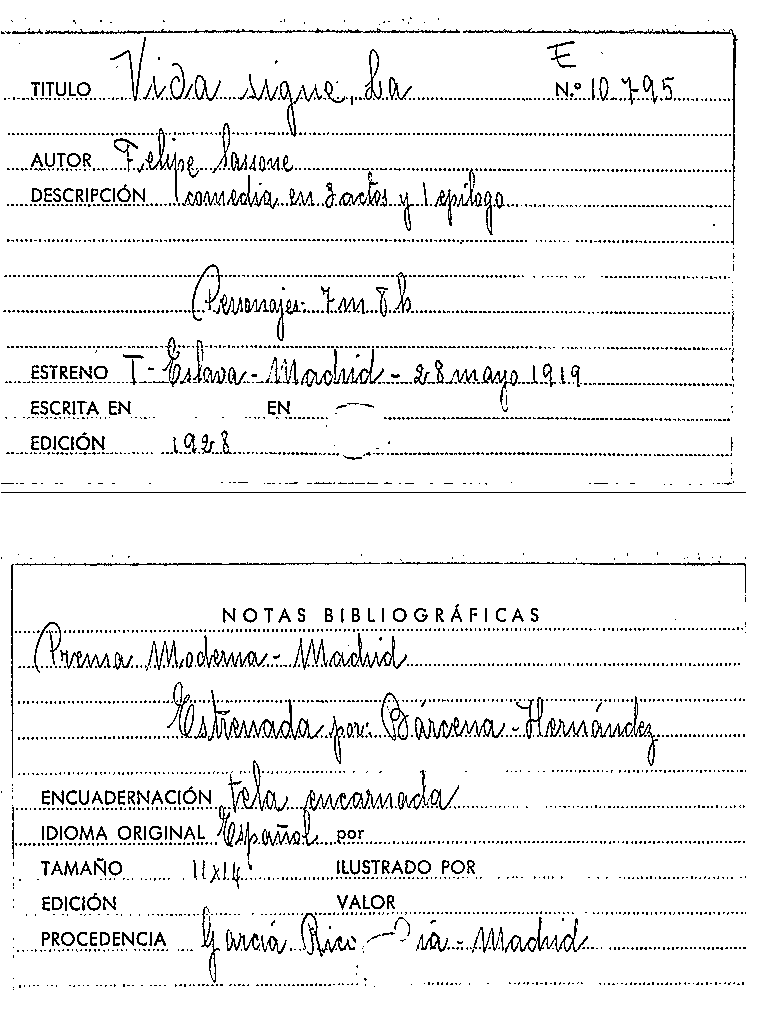 E
TITULO Vida sigue, La N.º 10.795
AUTOR Felipe Sassone
DESCRIPCIÓN comedia en 3 actos y 1 epílogo
Personajes: 7 m 8 h
ESTRENO T - Eslava - Madrid - 28 mayo 1919
ESCRITA EN EN
EDICIÓN 1928
NOTAS BIBLIOGRÁFICAS
Prensa Moderna - Madrid
Estrenada por: Bárcena - Hernández
ENCUADERNACIÓN tela encarnada
IDIOMA ORIGINAL Español por
TAMAÑO 11x14 ILUSTRADO POR
EDICIÓN VALOR
PROCEDENCIA García Rico - Madrid